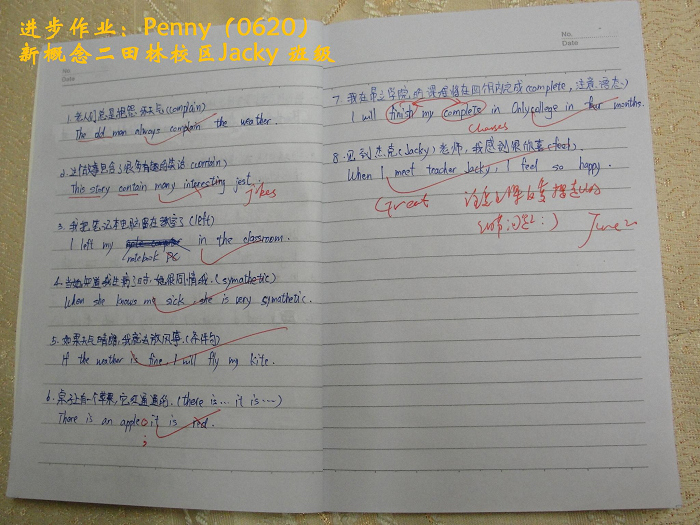 进步作业：Penny（0620）
新概念二田林校区Jacky 班级
No
Date
No.
Date
1. 老人们总是抱怨坏天气(complain)
The old man always complain the weather.
2. 这个故事包含了很多有趣的笑话(contain)
This story contain many interesting jest.
jokes
3. 我把笔记本电脑留在教室了(left)
I left my in the classroom.
notebook PC
4. 当她知道我生病了时, 她很同情我. (symathetic)
When she knows me sick, she is very symathetic.
5. 如果天气晴朗, 我就去放风筝. (条件句)
If the weather is fine, I will fly my kite.
6. 桌子上有一个苹果, 它红通通的. (there is… it is…)
There is an apple, it is red.
;
7. 我在昂立学院的课程将在四个月内完成(complete, 注意语态)
I will finish my complete in Onlycollege in four months.
classes
8. 见到杰克(Jacky)老师, 我感到很欣喜(feel)
When I meet teacher Jacky, I feel so happy.
Great
June 2